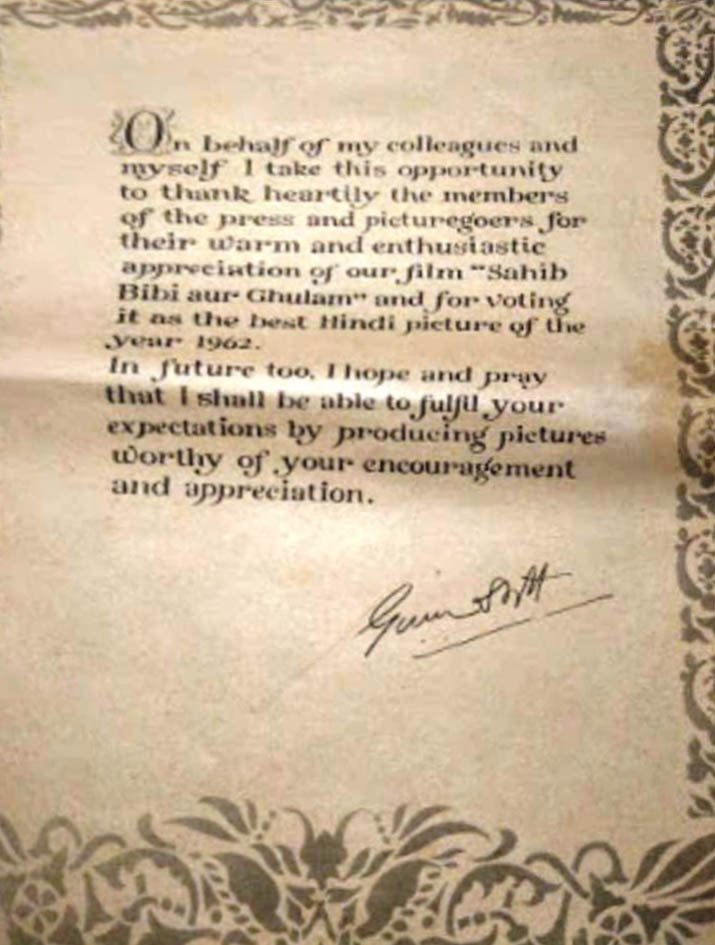 On behalf of my colleagues and
myself I take this opportunity
to thank heartily the members
of the press and picturegoers for
their warm and enthusiastic
appreciation of our film "Sahib
Bibi aur Ghulam" and for voting
it as the best Hindi picture of the
year 1962.
In future too, I hope and pray
that I shall be able to fulfil your
expectations by producing pictures
worthy of your encouragement
and appreciation.
Guru Dutt